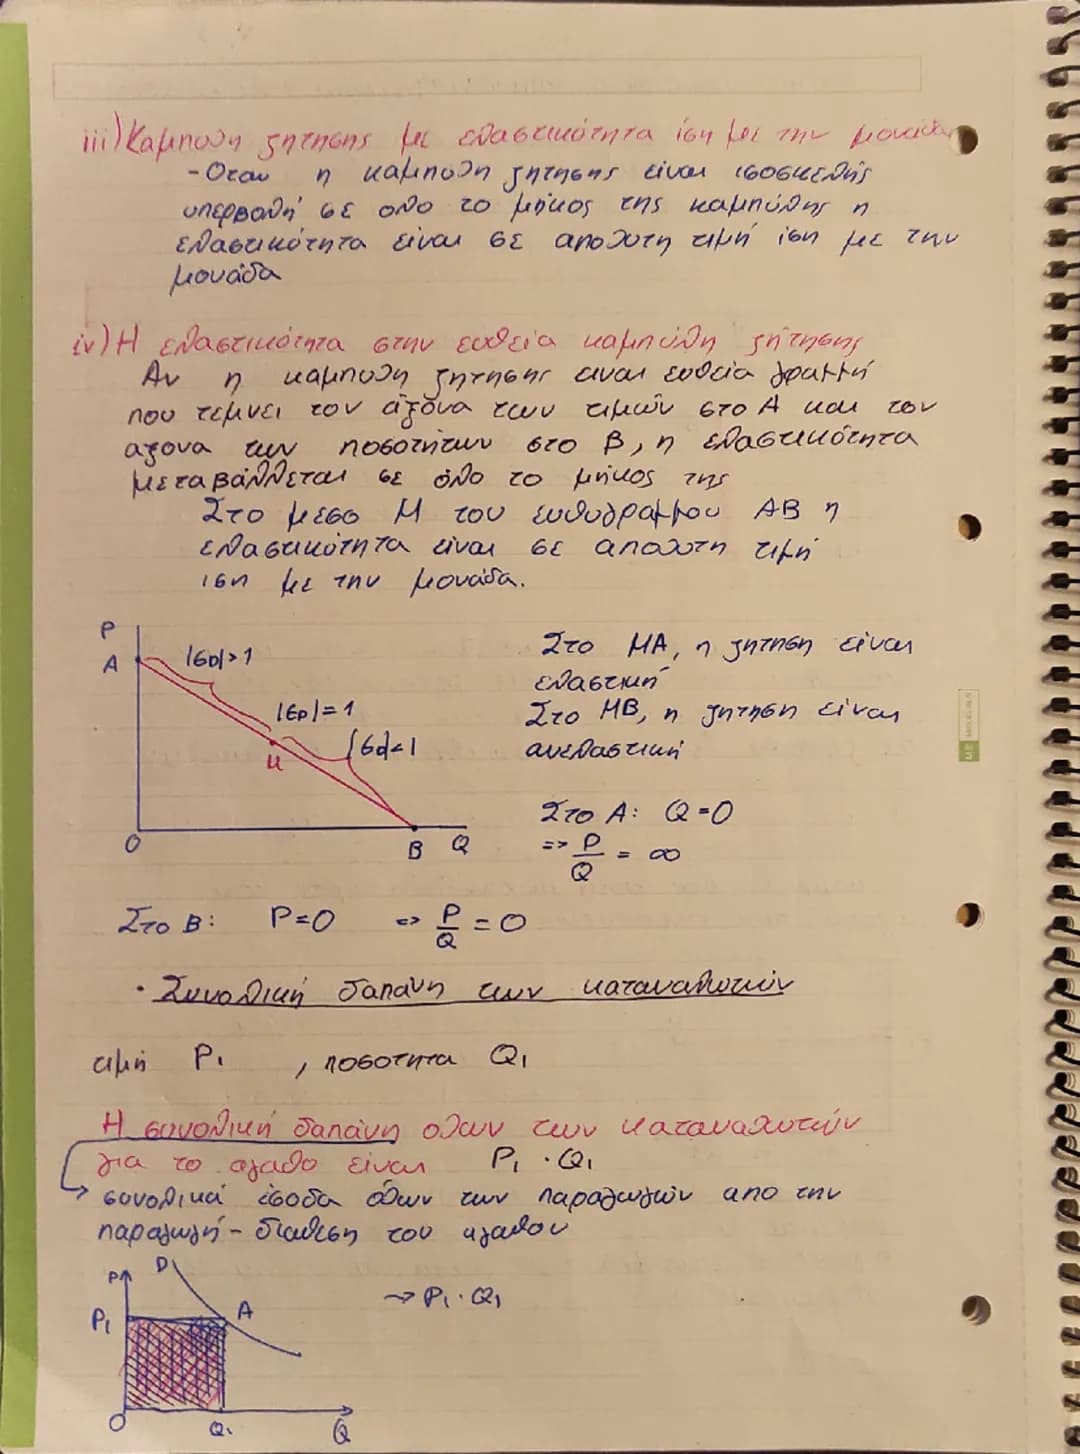 iii) Καμπυλη ζητησης με ελαστικότητα ίση με την μονάδα
- Οταν η καμπυλη ζητησης είναι ισοσκελής
υπερβολή σε ολο το μήκος της καμπύλης η
ελαστικότητα είναι σε απολυτη τιμή ίση με την
μονάδα
iv) Η ελαστικότητα στην ευθεία καμπύλη ζήτησης
Αν η καμπυλη ζητησης ειναι ευθεία γραμμή
που τεμνει τον άξονα των τιμών στο Α και τον
αξονα των ποσοτήτων στο Β, η ελαστικότητα
μεταβάλλεται σε όλο το μήκος της
Στο μεσο Μ του ευθυγραμμου ΑΒ η
ελαστικότητα είναι σε απολυτη τιμή
ιση με την μονάδα.
P
A
|ED|>1
|ED|=1
|Ed|<1
M
O
B Q
Στο ΜΑ, η ζητηση είναι
ελαστική
Στο ΜΒ, η ζητηση είναι
ανελαστική
Στο Α: Q=0
=> P/Q = ∞
Στο Β: P=0 => P/Q = 0
· Συνολική δαπάνη των καταναλωτών
τιμή P1 , ποσοτητα Q1
Η συνολική δαπάνη ολων των καταναλωτών
για το αγαθο είναι P1 · Q1
συνολικά έσοδα όλων των παραγωγών απο την
παραγωγή - διαθεση του αγαθου
P
D
P1
A
→ P1 · Q1
O
Q1
Q